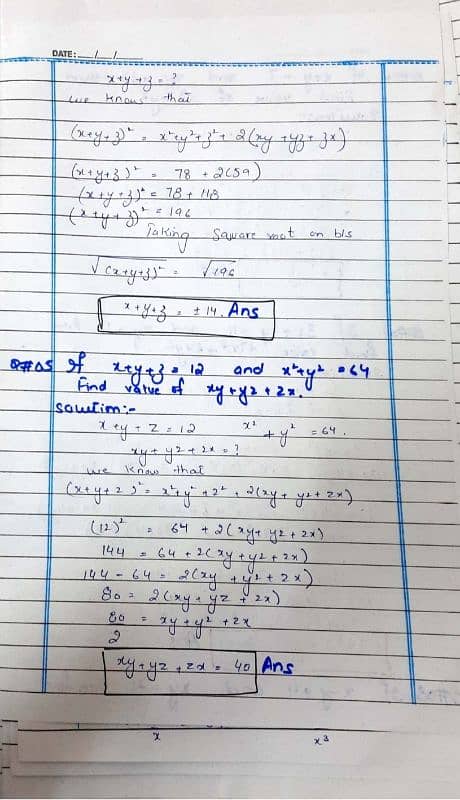 DATE: / /
x+y+z = ?
we know that
(x+y+z)² = x²+y²+z²+ 2(xy+yz+zx)
(x+y+z)² = 78 + 2(59)
(x+y+z)² = 78 + 118
(x+y+z)² = 196
Taking Square root on b/s
√(x+y+z)² = √196
x+y+z = ±14. Ans
Q#05 If x+y+z = 12 and x²+y² = 64
find value of xy+yz+zx.
Solution:-
x+y+z = 12 x² + y² = 64.
xy+yz+zx = ?
we know that
(x+y+z)² = x²+y²+z²+2(xy+yz+zx)
(12)² = 64 + 2(xy+yz+zx)
144 = 64 + 2(xy+yz+zx)
144 - 64 = 2(xy+yz+zx)
80 = 2(xy+yz+zx)
80 = xy+yz+zx
2
xy+yz+zx = 40 Ans
x x³